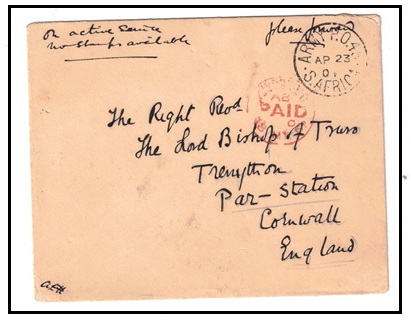 on active service
no stamps available
please forward
ARMY P.O. 43
AP 23
01
S. AFRICA
PAID
The Right Revd
The Lord Bishop of Truro
Trenython
Par-Station
Cornwall
England